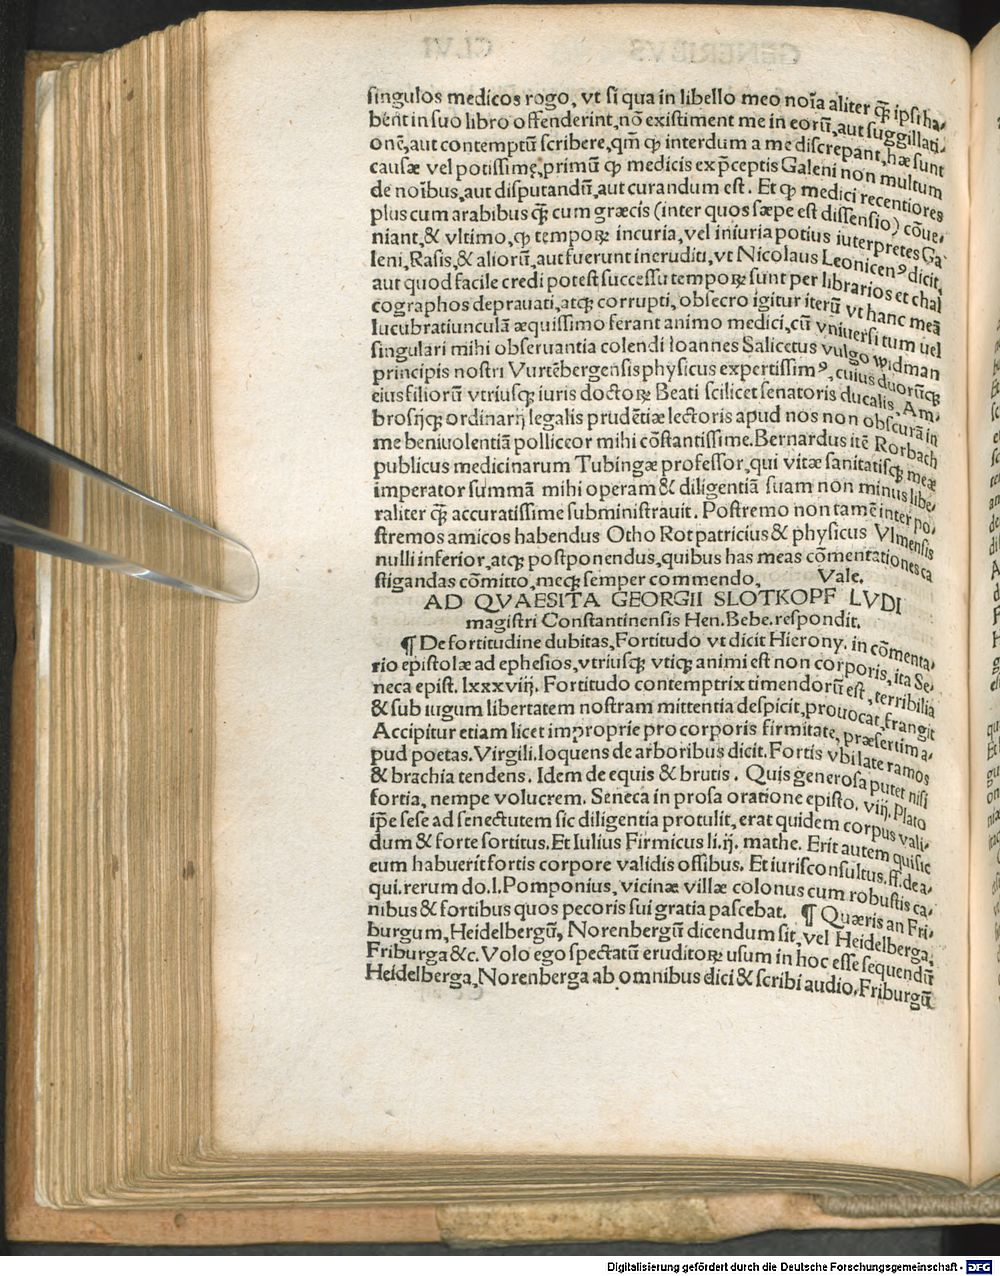 singulos medicos rogo, vt si qua in libello meo noīa aliter q̃ꝫ ipsi ha-
bēnt in suo libro offenderint, nō existiment me in eorū, aut suggillati-
onē, aut contemptū scribere, qm̄ ꝙ interdum a me discrepant, hæ sunt
causæ vel potissimę, primū ꝙ medicis ex p̄ceptis Galeni non multum
de noībus, aut disputandū, aut curandum est. Et ꝙ medici recentiores
plus cum arabibus q̃ꝫ cum græcis (inter quos sæpe est dissensio) cōue-
niant, & vltimo, ꝙ tempoꝝ incuria, vel iniuria potius iuterpretes Ga
leni, Rasis, & aliorū, aut fuerunt ineruditi, vt Nicolaus Leonicenꝰ dicit,
aut quod facile credi potest successu tempoꝝ sunt per librarios et chal
cographos deprauati, atqꝫ corrupti, obsecro igitur iterū vt hanc meā
lucubratiunculā æquissimo ferant animo medici, cū vniuersi tum uel
singulari mihi obseruantia colendi Ioannes Salicetus vulgo widman
principis nostri Vurtēbergensis physicus expertissimꝰ, cuius duorūqꝫ
eius filiorū vtriusqꝫ iuris doctoꝝ Beati scilicet senatoris ducalis, Am-
brosijqꝫ ordinarij legalis prudētiæ lectoris apud nos non obscurā in
me beniuolentiā polliceor mihi cōstantissime. Bernardus itē Rorbach
publicus medicinarum Tubingæ professor, qui vitæ sanitatisqꝫ meæ
imperator summā mihi operam & diligentiā suam non minus libe-
raliter q̃ꝫ accuratissime subministrauit. Postremo non tamē inter po-
stremos amicos habendus Otho Rot patricius & physicus Vlmensis
nulli inferior, atqꝫ postponendus, quibus has meas cōmentationes ca
stigandas cōmitto, meqꝫ semper commendo, Vale.
AD QVAESITA GEORGII SLOTKOPF LVDI
magistri Constantinensis Hen. Bebe. respondit.
¶ De fortitudine dubitas, Fortitudo vt dicit Hierony. in cōmenta-
rio epistolæ ad ephesios, vtriusqꝫ vtiqꝫ animi est non corporis, ita Se-
neca epist. lxxxviij. Fortitudo contemptrix timendorū est, terribilia
& sub iugum libertatem nostram mittentia despicit, prouocat, frangit
Accipitur etiam licet improprie pro corporis firmitate, præsertim a-
pud poetas. Virgili. loquens de arboribus dicit. Fortis vbi late ramos
& brachia tendens. Idem de equis & brutis. Quis generosa putet nisi
fortia, nempe volucrem. Seneca in prosa oratione episto. viij. Plato
ip̄e sese ad senectutem sic diligentia protulit, erat quidem corpus vali-
dum & forte sortitus. Et Iulius Firmicus li. ij. mathe. Erit autem quisic
eum habuerit fortis corpore validis ossibus. Et iurisconsultus. ff. de a-
qui. rerum do. l. Pomponius, vicinæ villæ colonus cum robustis ca-
nibus & fortibus quos pecoris sui gratia pascebat. ¶ Quæris an Fri-
burgum, Heidelbergū, Norenbergū dicendum sit, vel Heidelberga,
Friburga &c. Volo ego spectatū eruditoꝝ usum in hoc esse sequendū
Heidelberga, Norenberga ab omnibus dici & scribi audio, Friburgū
Digitalisierung gefördert durch die Deutsche Forschungsgemeinschaft - DFG